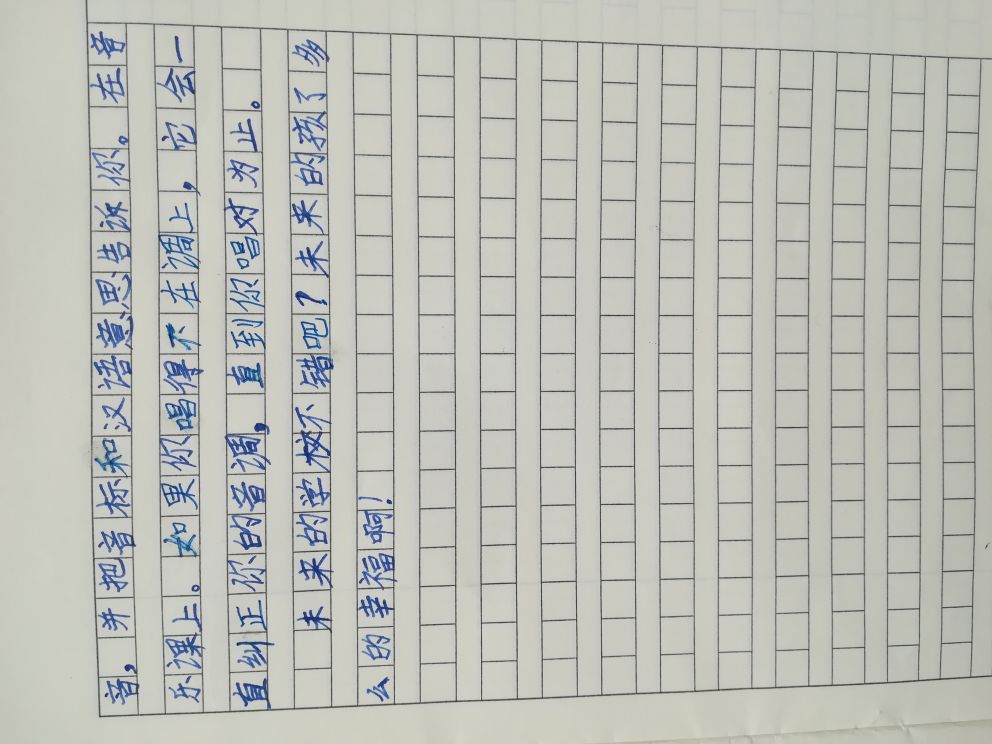 音，并把音标和汉语意思告诉你。在音
乐课上。如果你唱得不在调上，它会一
直纠正你的音调，直到你唱对为止。
未来的学校不错吧？未来的孩了多
么的幸福啊！